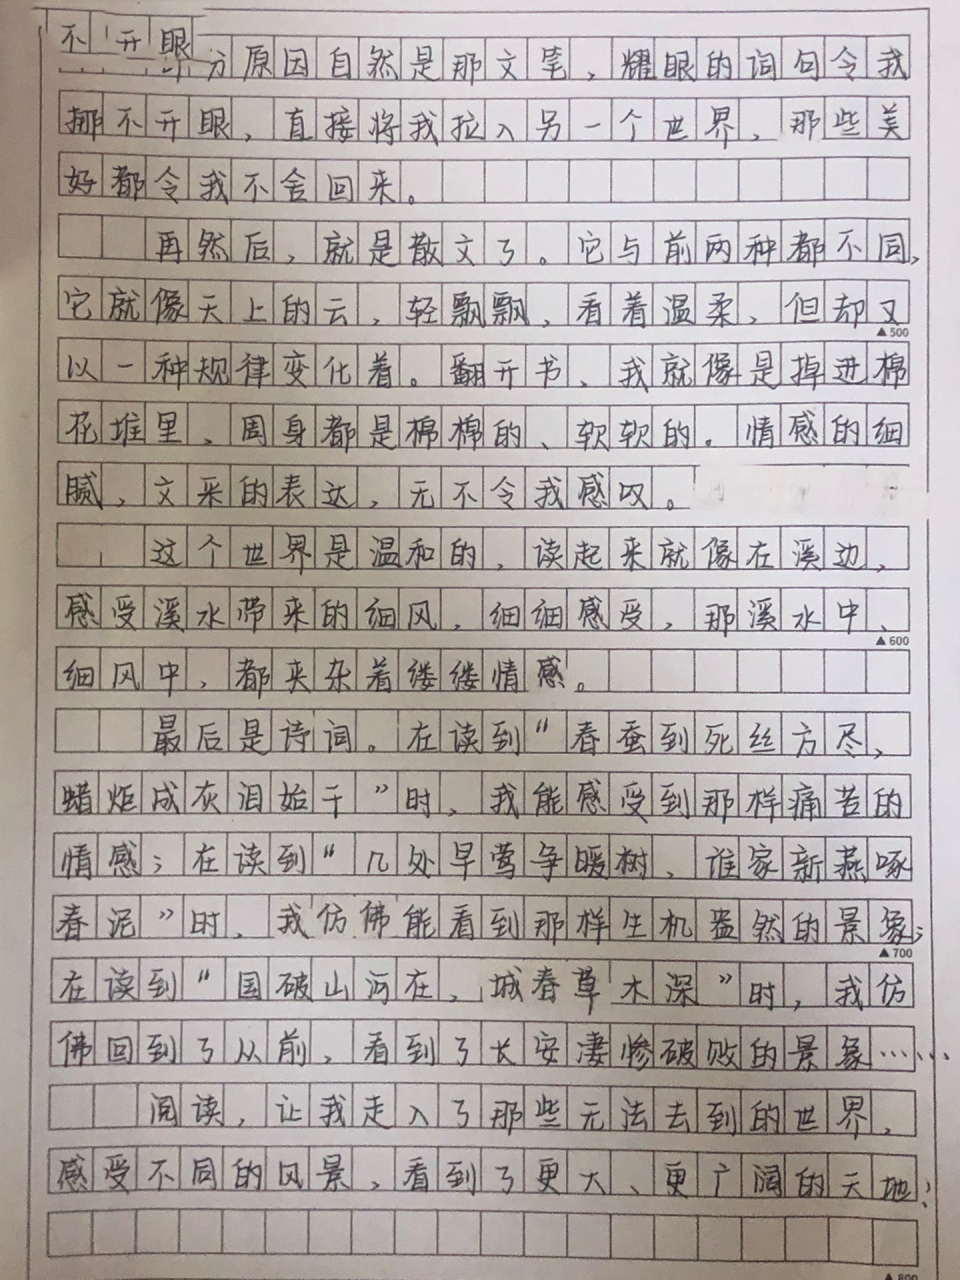 不开眼
分原因自然是那文笔，耀眼的词句令我
挪不开眼，直接将我拉入另一个世界，那些美
好都令我不舍回来。
再然后，就是散文了。它与前两种都不同，
它就像天上的云，轻飘飘，看着温柔，但却又
▲500
以一种规律变化着。翻开书、我就像是掉进棉
花堆里，周身都是棉棉的、软软的。情感的细
腻，文采的表达，无不令我感叹。
这个世界是温和的，读起来就像在溪边，
感受溪水带来的细风，细细感受，那溪水中、
▲600
细风中，都夹杂着缕缕情感。
最后是诗词。在读到“春蚕到死丝方尽，
蜡炬成灰泪始干”时，我能感受到那样痛苦的
情感；在读到“几处早莺争暖树，谁家新燕啄
春泥”时，我仿佛能看到那样生机盎然的景象；
▲700
在读到“国破山河在，城春草木深”时，我仿
佛回到了从前，看到了长安凄惨破败的景象……
阅读，让我走入了那些无法去到的世界，
感受不同的风景，看到了更大、更广阔的天地！
▲800